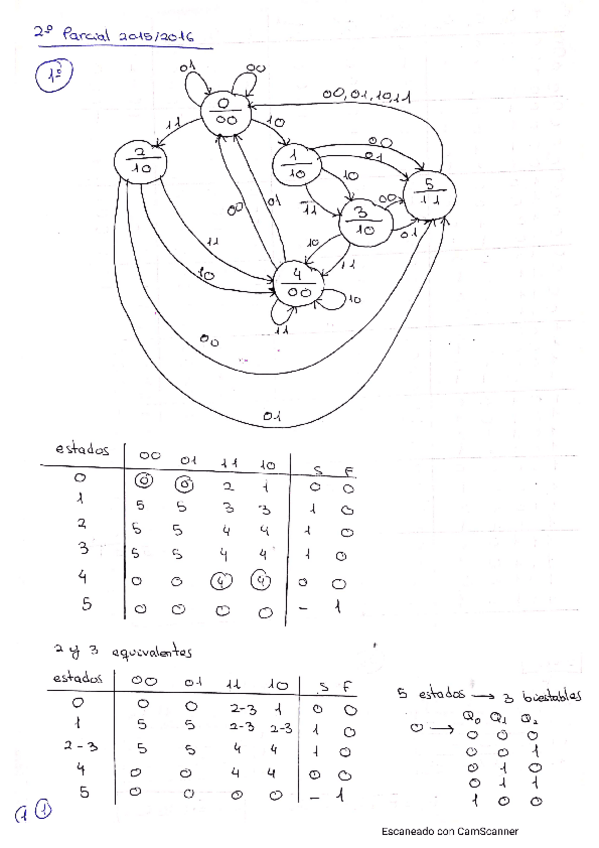 2º Parcial 2015/2016
1º
01 00
0
00
00, 01, 10, 11
11 10
2
10
1
10
00
01
5
11
10
11
3
10
00
01
00 01
11
10
10
11
4
00
10
11
00
01
estados 00 01 11 10 S F
0 0 0 2 1 0 0
1 5 5 3 3 1 0
2 5 5 4 4 1 0
3 5 5 4 4 1 0
4 0 0 4 4 0 0
5 0 0 0 0 - 1
2 y 3 equivalentes
estados 00 01 11 10 S F
0 0 0 2-3 1 0 0
1 5 5 2-3 2-3 1 0
2-3 5 5 4 4 1 0
4 0 0 4 4 0 0
5 0 0 0 0 - 1
5 estados → 3 biestables
Q0 Q1 Q2
0 → 0 0 0
0 0 1
0 1 0
0 1 1
1 0 0
1 1
Escaneado con CamScanner